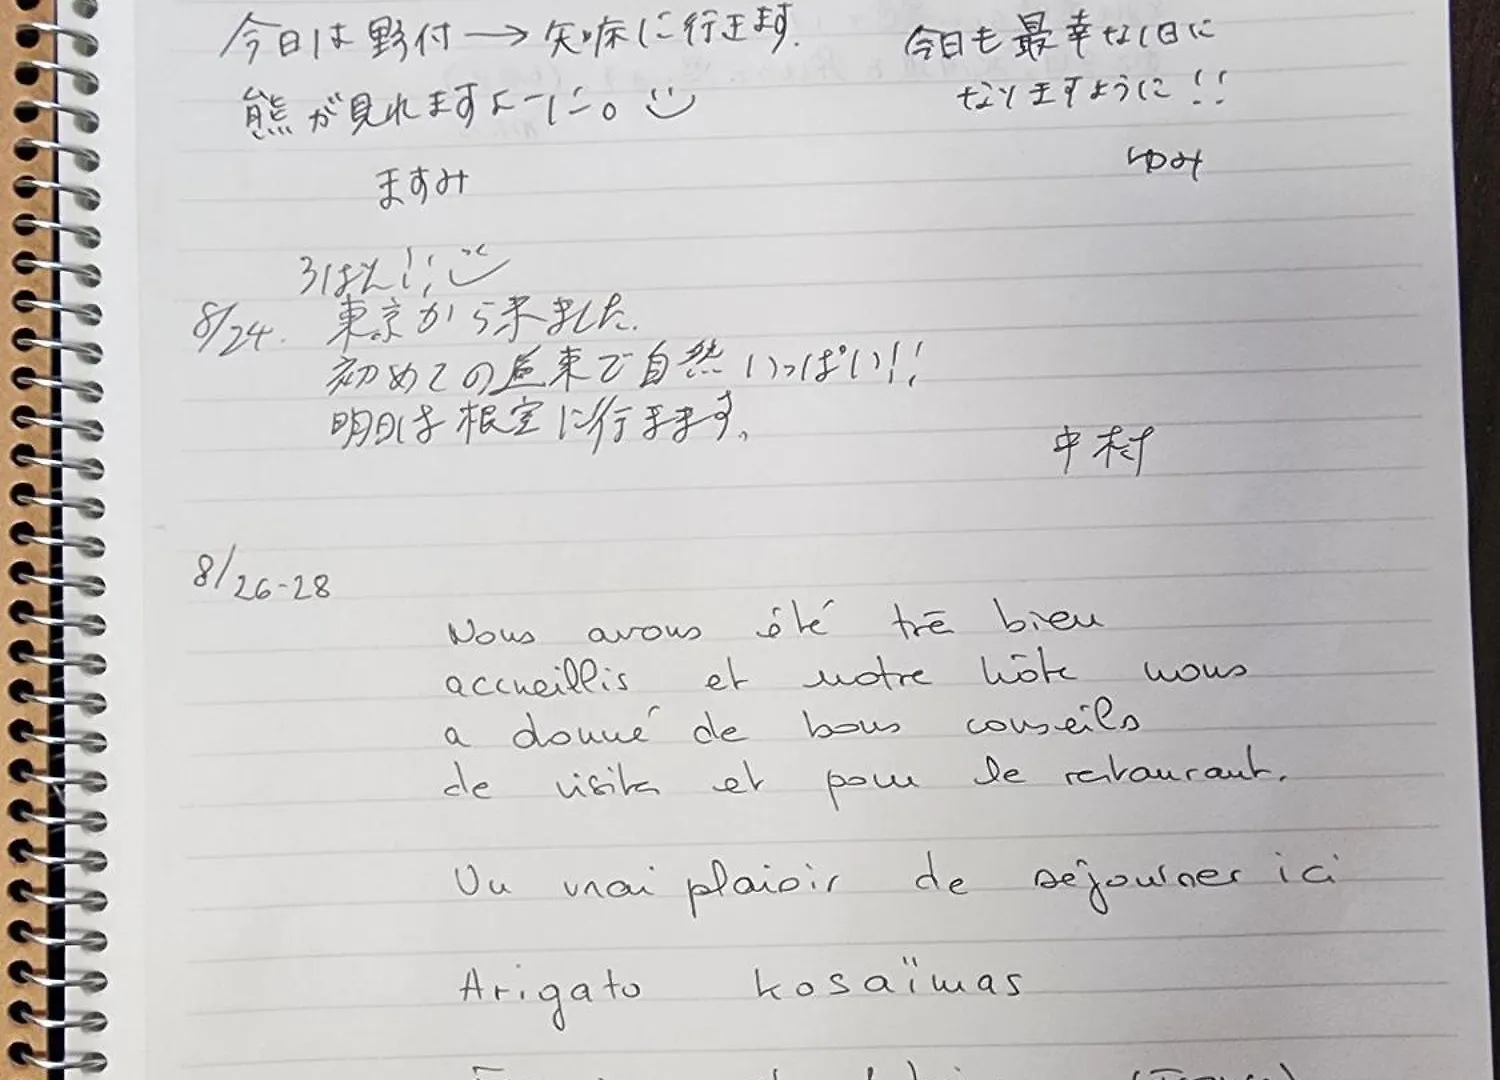 今日は野付→知床に行きます.
熊が見れますよーに。
ますみ
今日も最幸な1日に
なりますように!!
ゆみ
8/24. 東京から来ました.
初めての道東で自然いっぱい!!
明日は根室に行きます。
中村
8/26-28
Nous avons été trē bien
accueillis et notre hôte nous
a donné de bons conseils
de visite et pour le restaurant.
Un vrai plaisir de séjourner ici
Arigato kosaïmas